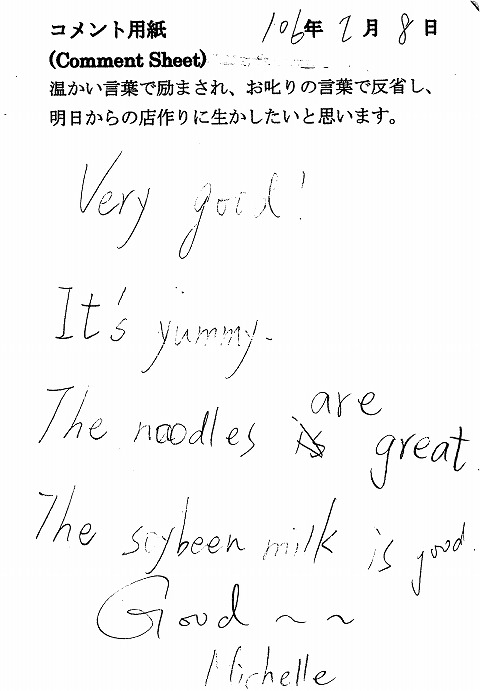 コメント用紙 106年2月8日
(Comment Sheet)
温かい言葉で励まされ、お叱りの言葉で反省し、
明日からの店作りに生かしたいと思います。
Very good!
It's yummy.
The noodles are great.
The soybeen milk is good.
Good ~ ~
Michelle